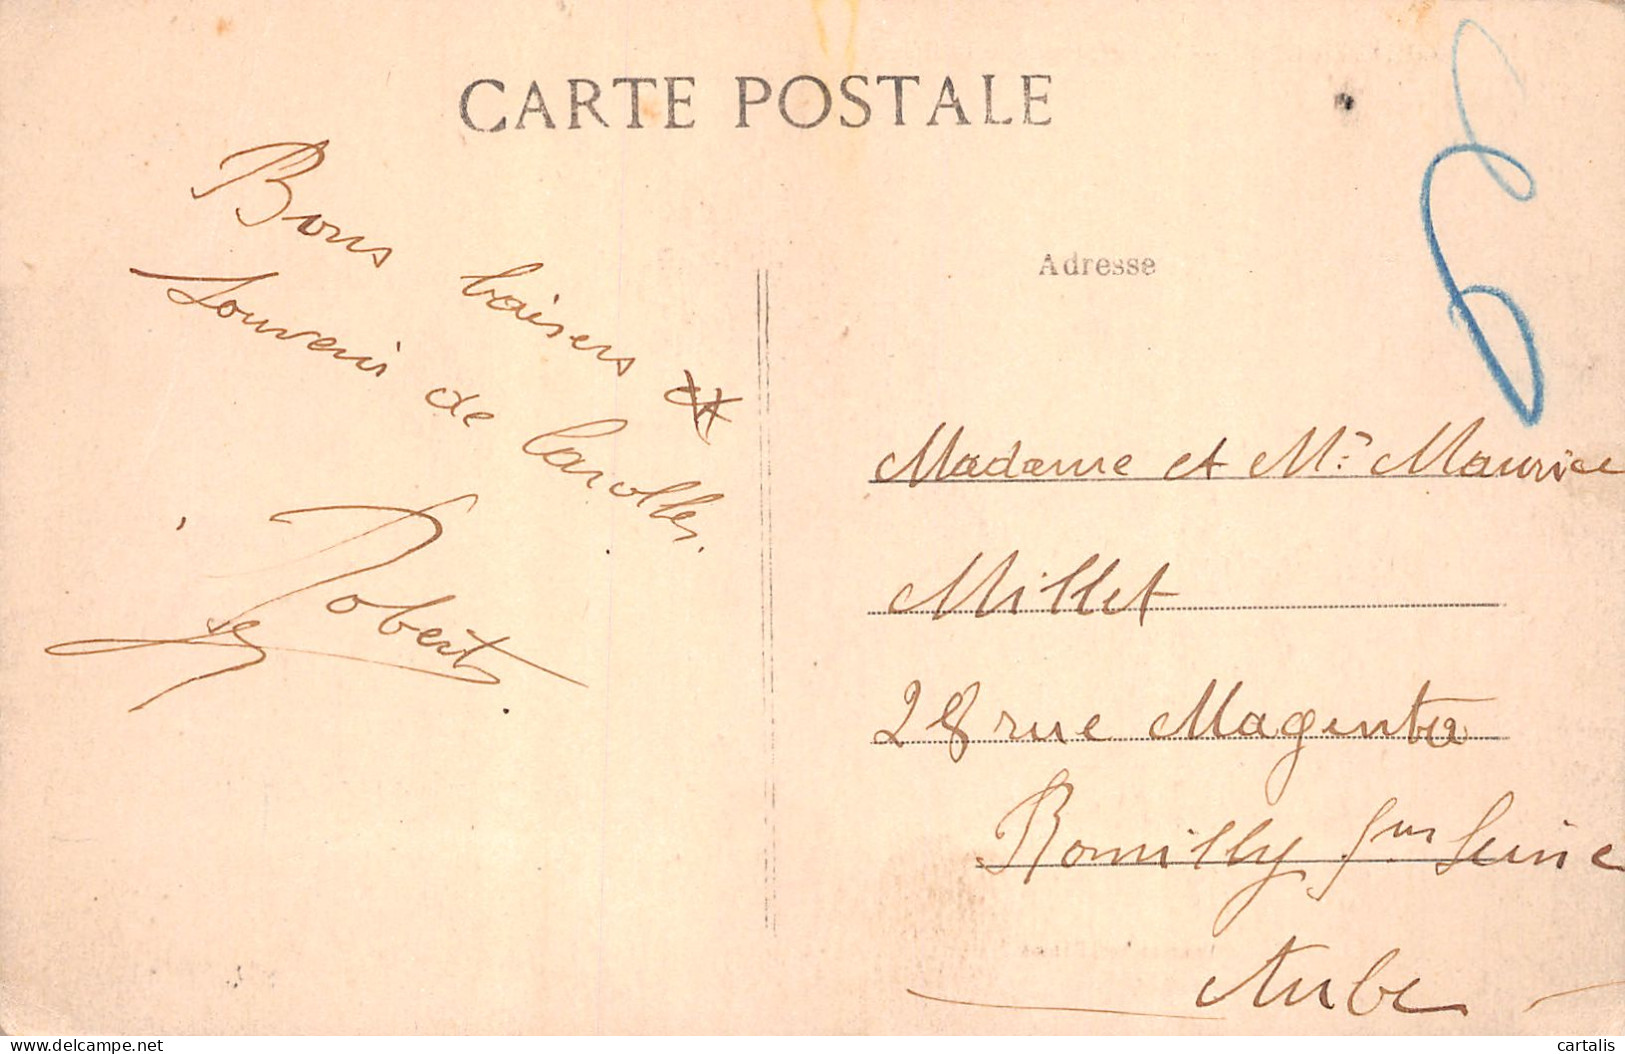 CARTE POSTALE
Bons baisers et
Souvenir de Carolles.
Robert
Adresse
Madame et Mr Maurice
Millet
28 rue Magenta
Romilly sur Seine
Aube
cartalis
delcampe.net